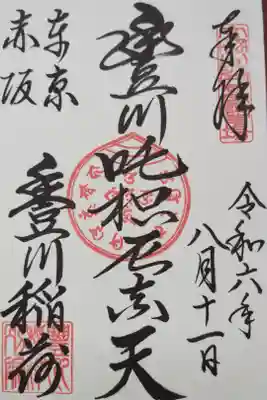 奉拝
令和六年
八月十一日
豐川吒枳尼真天
東京
赤坂
豐川稲荷